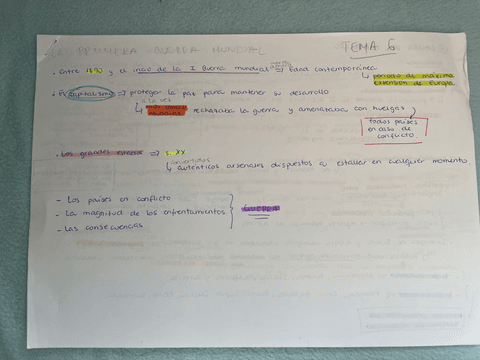 LA PRIMERA GUERRA MUNDIAL
TEMA 6
· Entre 1890 y el inicio de la I Guerra mundial ⇒ Edad contemporánea
↳ período de máxima
extensión de Europa
· El capitalismo ⇒ proteger la paz para mantener su desarrollo
a la vez
↳ rechazaba la guerra y amenazaba con huelgas
todos países
en caso de
conflicto
· Los grandes estados ⇒ XX
convertidos
↳ auténticos arsenales dispuestos a estallar en cualquier momento
- Los países en conflicto
- La magnitud de los enfrentamientos
- Las consecuencias
GUERRA